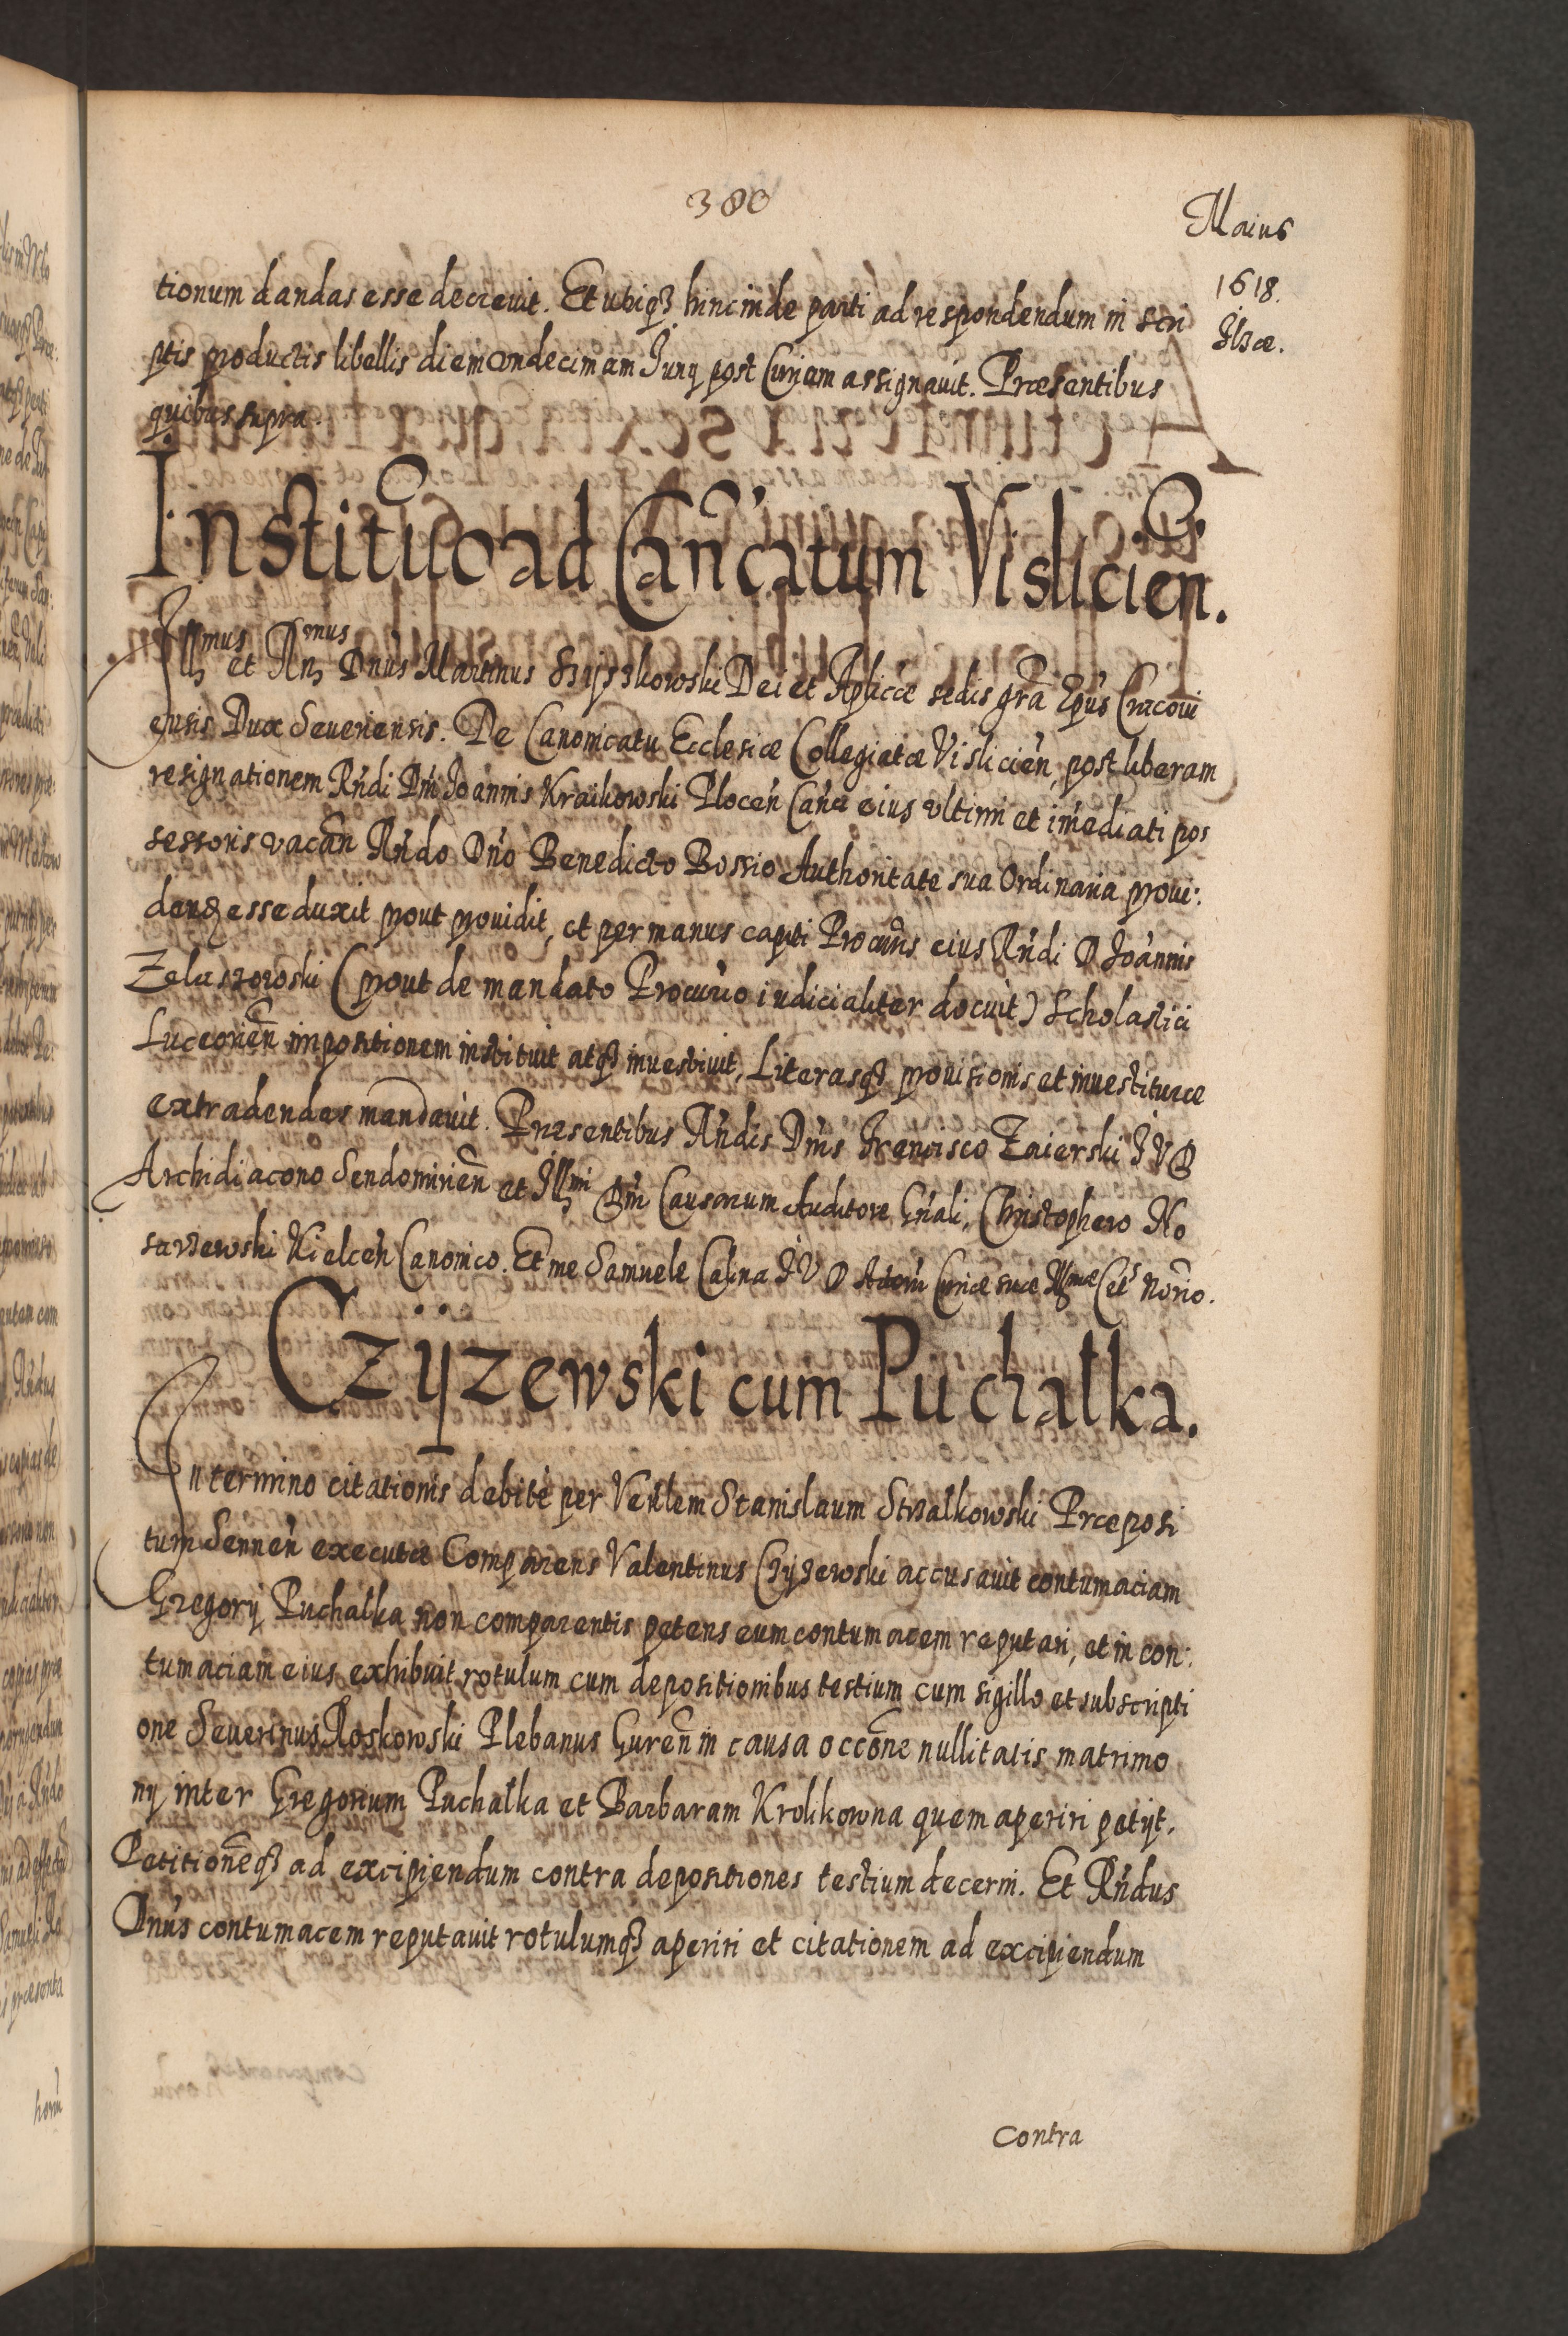 380
Maius
1618.
Ilzæ.
tionum dandas esse decrevit. Et utiq3 hinc inde parti ad respondendum in scri
ptis productis libellis diem undecimam Junij post Curiam assignavit. Præsentibus
quibus supra.
Institutio ad Can̄catum Vislicien̄.
Illmus et Rnmus Dn̄us Martinus Szyszkowski Dei et Aplicæ sedis gra̅ Ep̄us Cracovi
ensis Dux Severiensis. De Canonicatu Ecclesiæ Collegiatæ Vislicien̄, post liberam
resignationem Rn̄di Dn̄i Joannis Kraikowski Plocen̄ Can̄ci eius ultimi et im̄ediati pos
sessoris vacan̄ Rn̄do Dn̄o Benedicto Bossio Authoritate sua Ordinaria provi:
dend esse duxit prout providit, et per manus capiti Procur̄is eius Rn̄di D Joannis
Zelaszowski (prout de mandato Procur̄io iudicialiter docuit) Scholastici
Luceorien̄ impositionem instituit atq3 investivit, Literasq3 provisionis et investituræ
extradendas mandavit. Præsentibus Rn̄dis Dn̄is Francisco Zaierski JVD
Archidiacono Sendomirien̄ et Illmi Dn̄i Causarum Auditore Gn̄ali, Christophero No
sarzewski Kielcen̄ Canonico. Et me Samuele Calina JVD Curiæ suæ Illmæ Cels Nor̄io.
Czÿzewski cum Puchałka.
In termino citationis debitè per Ven̄lem Stanislaum Strzałkowski Præposi
tum Sennen̄ executæ Comparens Valentinus Czyzewski accusavit contumaciam
Gregorij Puchałka non comparentis petens eum contumacem reputari, et in con:
tumaciam eius exhibuit rotulum cum depositionibus testium cum sigillo et subscripti
one Severinus Roskowski Plebanus Guren̄ in causa occōne nullitatis matrimo
nij inter Gregorium Puchałka et Barbaram Krolikowna quem aperiri petijt.
Petitionēq3 ad excipiendum contra depositiones testium decerni. Et Rn̄dus
Dn̄us contumacem reputavit rotulumq3 aperiri et citationem ad excipiendum
contra